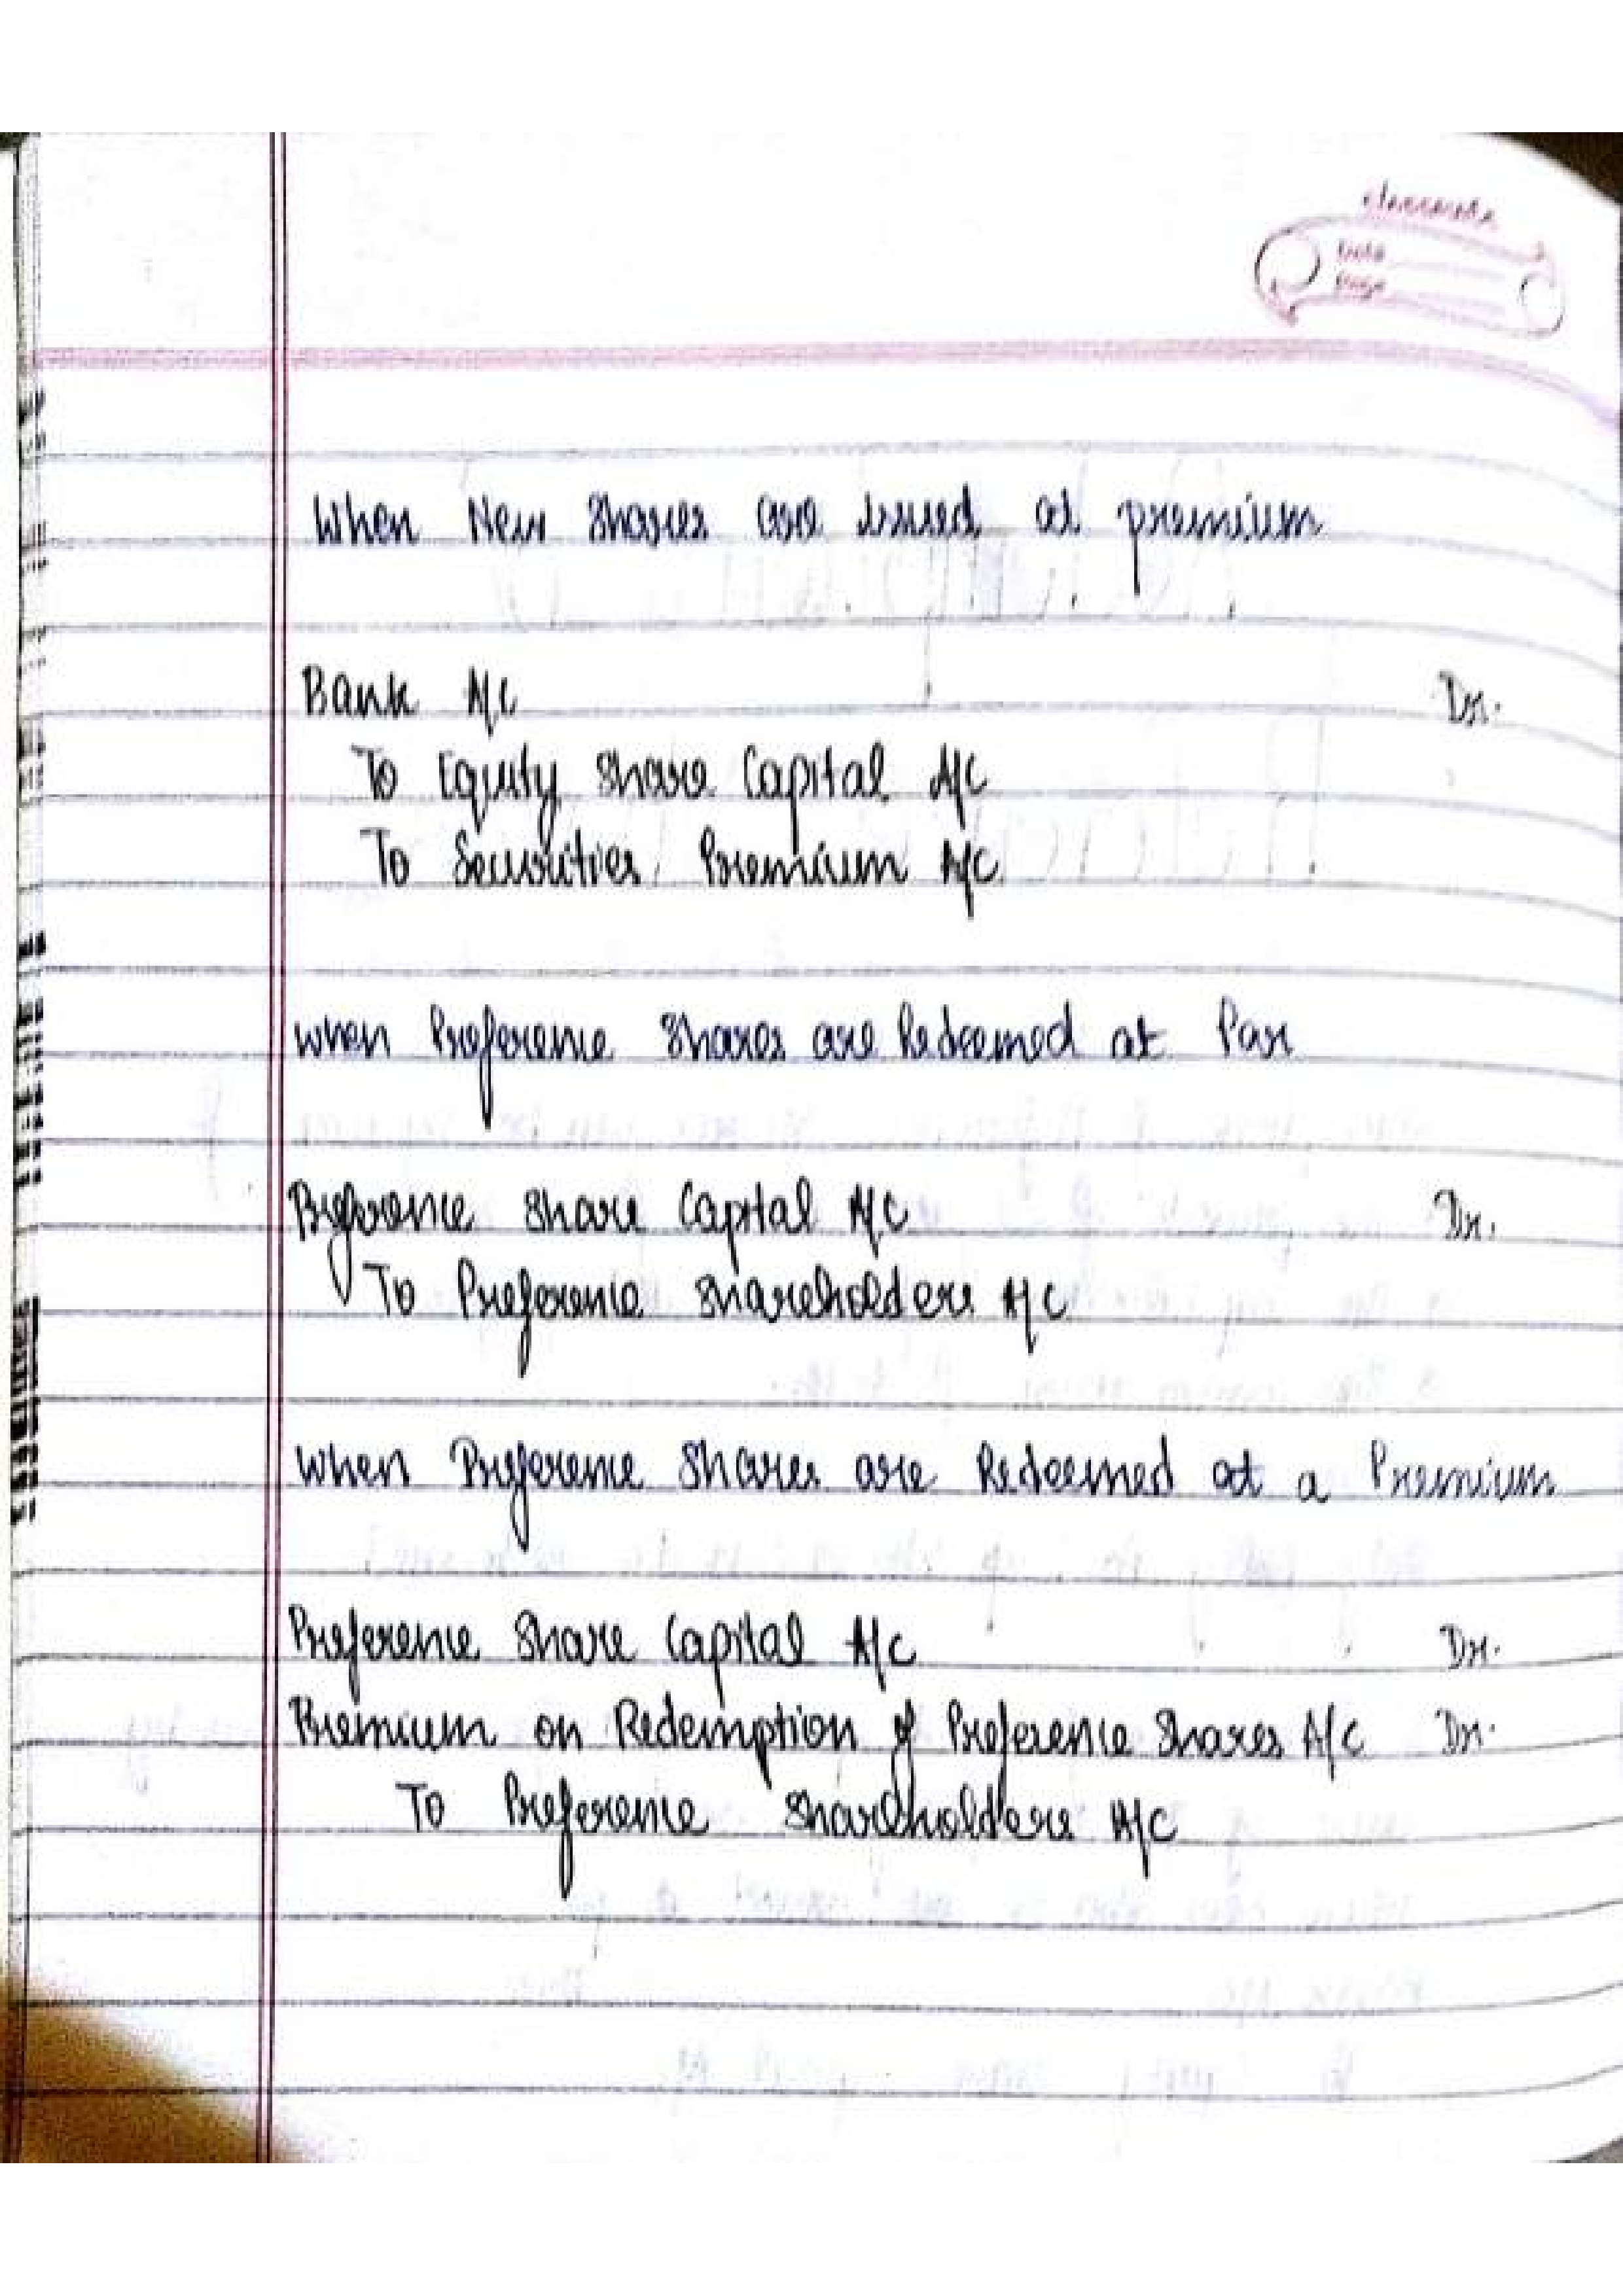 classmate
Date
Page
When New Shares are issued at premium
Bank A/c Dr.
To Equity Share Capital A/c
To Securities Premium A/c
When Preference Shares are Redeemed at Par
Preference Share Capital A/c Dr.
To Preference Shareholders A/c
When Preference Shares are Redeemed at a Premium
Preference Share Capital A/c Dr.
Premium on Redemption of Preference Shares A/c Dr.
To Preference Shareholders A/c